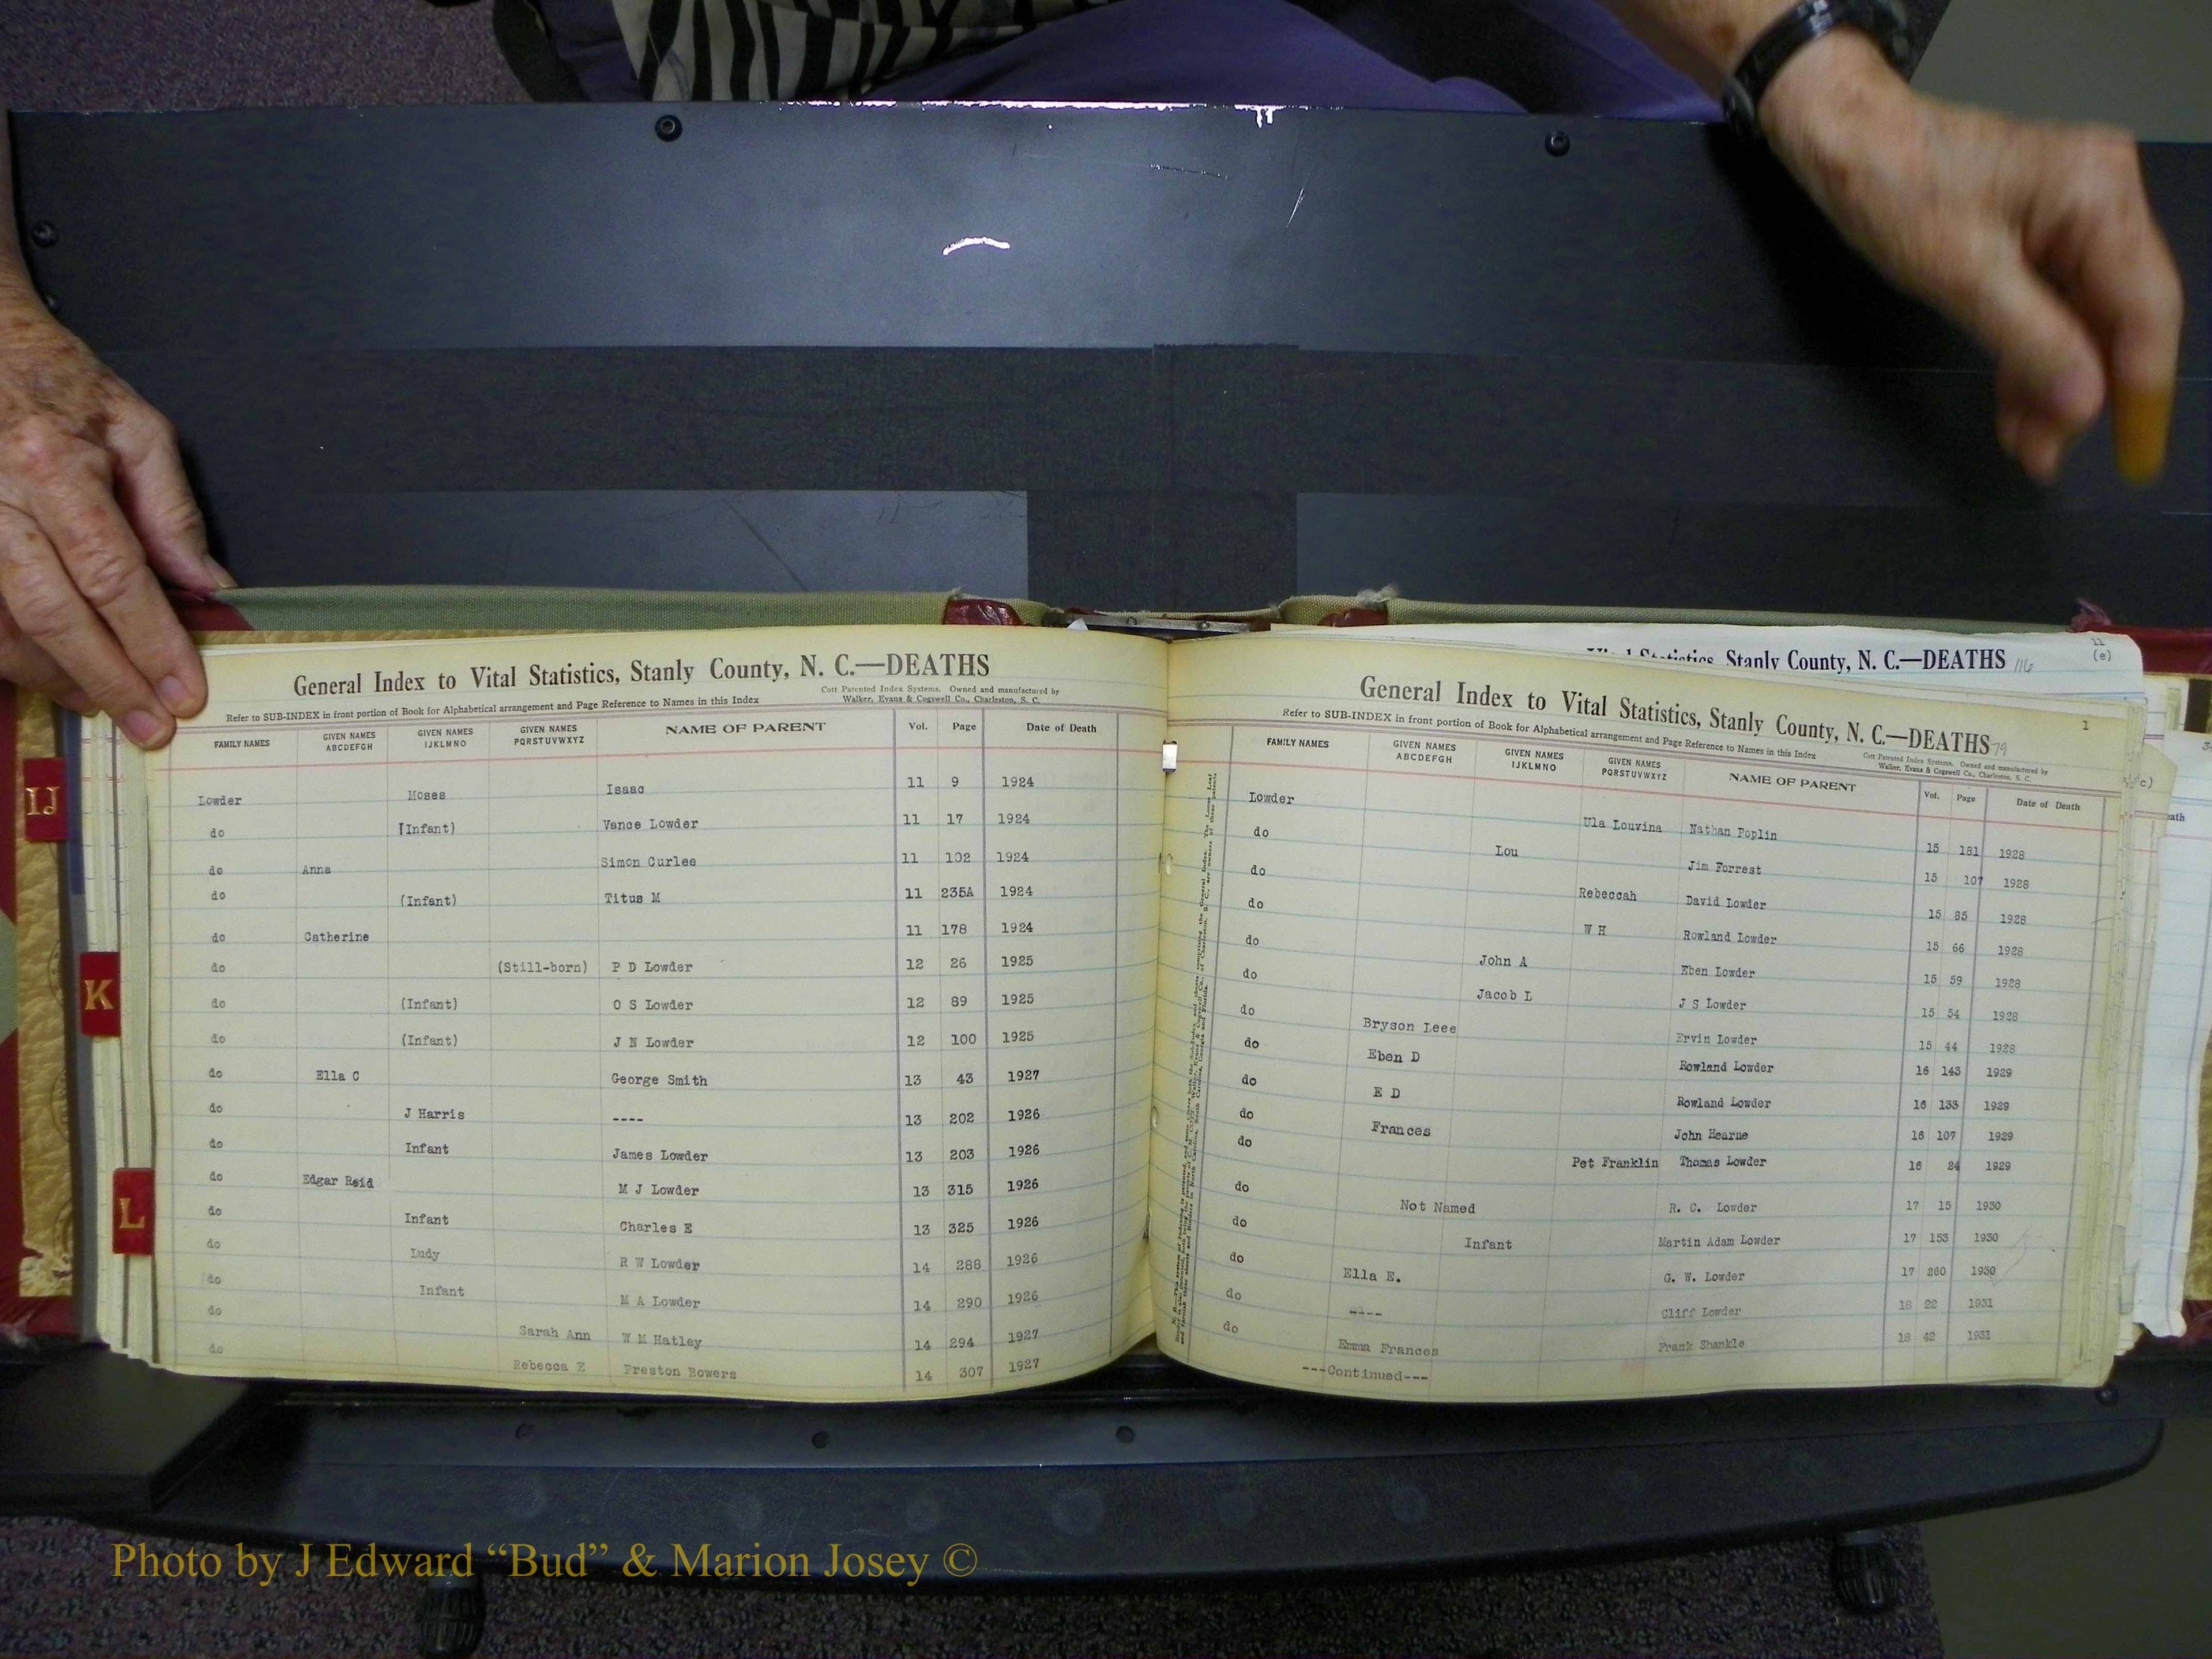 General Index to Vital Statistics, Stanly County, N. C.—DEATHS
Refer to SUB-INDEX in front portion of Book for Alphabetical arrangement and Page Reference to Names in this Index
Cott Patented Index Systems. Owned and manufactured by
Walker, Evans & Cogswell Co., Charleston, S. C.
FAMILY NAMES GIVEN NAMES ABCDEFGH GIVEN NAMES IJKLMNO GIVEN NAMES PQRSTUVWXYZ NAME OF PARENT Vol. Page Date of Death
Lowder Moses Isaac 11 9 1924
do (Infant) Vance Lowder 11 17 1924
do Anna Simon Curlee 11 102 1924
do (Infant) Titus M 11 235A 1924
do Catherine 11 178 1924
do (Still-born) P D Lowder 12 26 1925
do (Infant) O S Lowder 12 89 1925
do (Infant) J N Lowder 12 100 1925
do Ella C George Smith 13 43 1927
do J Harris ---- 13 202 1926
do Infant James Lowder 13 203 1926
do Edgar Reid M J Lowder 13 315 1926
do Infant Charles E 13 325 1926
do Ludy R W Lowder 14 288 1926
do Infant M A Lowder 14 290 1926
do Sarah Ann W M Hatley 14 294 1927
do Rebecca E Preston Bowers 14 307 1927
IJ
K
L
Stanly County, N. C.—DEATHS 116
11
(e)
General Index to Vital Statistics, Stanly County, N. C.—DEATHS 79
1
Refer to SUB-INDEX in front portion of Book for Alphabetical arrangement and Page Reference to Names in this Index
Cott Patented Index Systems. Owned and manufactured by
Walker, Evans & Cogswell Co., Charleston, S. C.
FAMILY NAMES GIVEN NAMES ABCDEFGH GIVEN NAMES IJKLMNO GIVEN NAMES PQRSTUVWXYZ NAME OF PARENT Vol. Page Date of Death
Lowder Ula Louvina Nathan Poplin 15 181 1928
do Lou Jim Forrest 15 107 1928
do Rebeccah David Lowder 15 85 1928
do W H Rowland Lowder 15 66 1928
do John A Eben Lowder 15 59 1928
do Jacob L J S Lowder 15 54 1928
do Bryson Leee Ervin Lowder 15 44 1928
do Eben D Rowland Lowder 16 143 1929
do E D Rowland Lowder 16 133 1929
do Frances John Hearne 16 107 1929
do Pet Franklin Thomas Lowder 16 24 1929
do Not Named R. C. Lowder 17 15 1930
do Infant Martin Adam Lowder 17 153 1930
do Ella E. G. W. Lowder 17 260 1930
do ---- Cliff Lowder 18 22 1931
do Emma Frances Frank Shankle 18 42 1931
---Continued---
Photo by J Edward “Bud” & Marion Josey ©